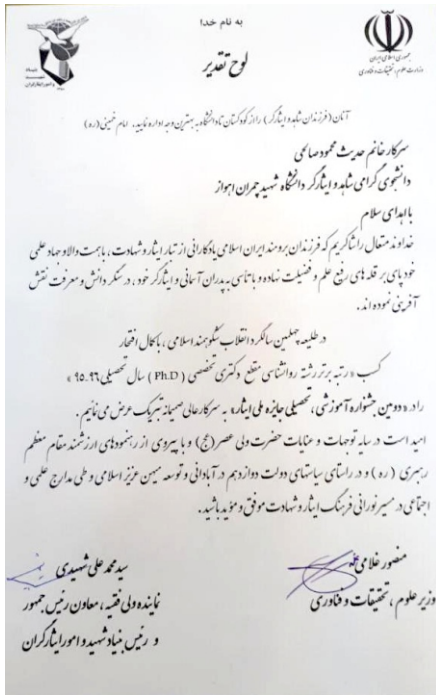 به نام خدا
جمهوری اسلامی ایران
وزارت علوم، تحقیقات و فناوری
بنیاد
شهید
و امور ایثارگران
لوح تقدیر
آنان (فرزندان شاهد و ایثارگر) را از کودکستان تا دانشگاه به بهترین وجه اداره نمایید. امام خمینی (ره)
سرکار خانم حدیث محمود صالحی
دانشجوی گرامی شاهد و ایثارگر دانشگاه شهید چمران اهواز
با اهدای سلام
خداوند متعال را شاکریم که فرزندان برومند ایران اسلامی یادگارانی از تبار ایثار و شهادت، با همت والا و جهاد علمی
خود پای بر قله های رفیع علم و فضیلت نهاده و با تأسی به پدران آسمانی و ایثارگر خود، در سنگر دانش و معرفت نقش
آفرینی نموده اند.
در طلیعه چهلمین سالگرد انقلاب شکوهمند اسلامی، با کمال افتخار
کسب « رتبه برتر رشته روانشناسی مقطع دکتری تخصصی (Ph.D) سال تحصیلی ۹۶-۹۵ »
را در « دومین جشنواره آموزشی، تحصیلی جایزه ملی ایثار» به سرکارعالی صمیمانه تبریک عرض می نمایم.
امید است در سایه توجهات و عنایات حضرت ولی عصر (عج) و با پیروی از رهنمودهای ارزشمند مقام معظم
رهبری (ره) و در راستای سیاستهای دولت دوازدهم در آبادانی و توسعه میهن عزیز اسلامی و طی مدارج علمی و
اجتماعی در مسیر نورانی فرهنگ ایثار و شهادت موفق و مؤید باشید.
منصور غلامی
وزیر علوم، تحقیقات و فناوری
سید محمد علی شهیدی
نماینده ولی فقیه، معاون رئیس جمهور
و رئیس بنیاد شهید و امور ایثارگران